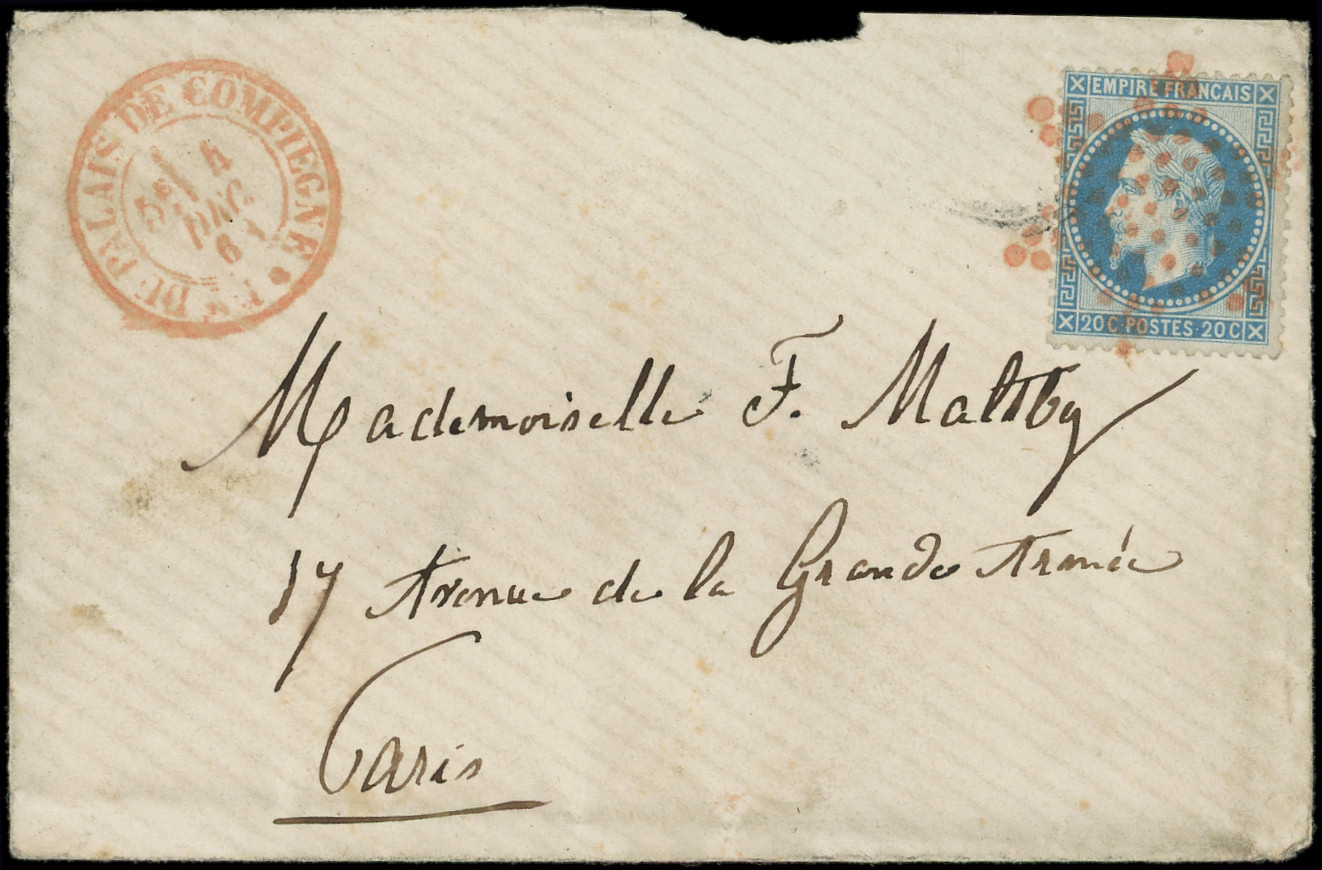 Bau DU PALAIS DE COMPIEGNE
5E
4
DEC.
EMPIRE FRANCAIS
20 C POSTES 20 C
Mademoiselle F. Maltby
17 Avenue de la Grande Armée
Paris